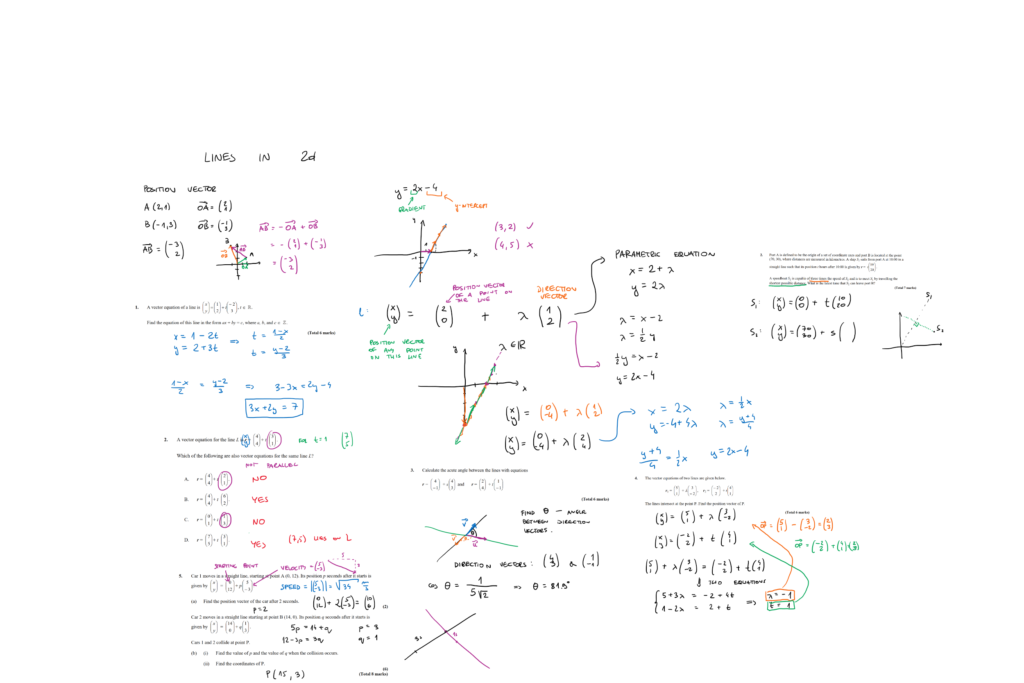 LINES IN 2d
POSITION VECTOR
A (2,1) OA = (2 1)
B (-1,3) OB = (-1 3)
AB = (-3 2)
AB = -OA + OB
= -(2 1) + (-1 3)
= (-3 2)
y = 2x - 4
GRADIENT
y-INTERCEPT
(3,2) ✓
(4,5) ×
L: (x y) = (2 0) + λ (1 2)
POSITION VECTOR OF A POINT ON THE LINE
DIRECTION VECTOR
POSITION VECTOR OF ANY POINT ON THIS LINE
λ ∈ ℝ
(x y) = (0 -4) + λ (1 2)
(x y) = (0 -4) + λ (2 4)
PARAMETRIC EQUATION
x = 2 + λ
y = 2λ
λ = x - 2
λ = ½ y
½y = x - 2
y = 2x - 4
x = 2λ λ = ½x
y = -4 + 4λ λ = (y+4)/4
(y+4)/4 = ½x y = 2x - 4
1. A vector equation of a line is (x y) = (1 2) + t(-2 3), t ∈ ℝ.
Find the equation of this line in the form ax + by = c, where a, b, and c ∈ ℤ.
(Total 6 marks)
x = 1 - 2t ⇒ t = (1-x)/2
y = 2 + 3t t = (y-2)/3
(1-x)/2 = (y-2)/3 ⇒ 3 - 3x = 2y - 4
3x + 2y = 7
2. A vector equation for the line L is
FOR t = 1 (7 5)
Which of the following are also vector equations for the same line L?
NOT PARALLEL
A. NO
B. YES
C. NO
D. YES (7,5) LIES ON L
STARTING POINT VELOCITY = (5 -3)
5. Car 1 moves in a straight line, starting at point A (0, 12). Its position p seconds after it starts is
given by (x y) = (0 12) + p(5 -3)
SPEED = |(5 -3)| = √34
(a) Find the position vector of the car after 2 seconds.
p = 2 (0 12) + 2(5 -3) = (10 6)
(2)
Car 2 moves in a straight line starting at point B (14, 0). Its position q seconds after it starts is
given by (x y) = (14 0) + q(1 3)
5p = 14 + q p = 3
12 - 3p = 3q q = 1
Cars 1 and 2 collide at point P.
(b) (i) Find the value of p and the value of q when the collision occurs.
(ii) Find the coordinates of P.
(6)
P (15, 3)
(Total 8 marks)
3. Calculate the acute angle between the lines with equations
r = (4 -1) + s(4 3) and r = (2 4) + t(1 -1)
(Total 6 marks)
FIND θ - ANGLE BETWEEN DIRECTION VECTORS.
DIRECTION VECTORS: (4 3) & (1 -1)
cos θ = 1/(5√2) ⇒ θ = 81.9°
4. The vector equations of two lines are given below.
r₁ = (5 1) + λ(3 -2), r₂ = (-2 2) + t(4 1)
The lines intersect at the point P. Find the position vector of P.
(Total 6 marks)
(x y) = (5 1) + λ (3 -2)
(x y) = (-2 2) + t (4 1)
(5 1) + λ (3 -2) = (-2 2) + t (4 1)
⇓ TWO EQUATIONS
5 + 3λ = -2 + 4t
1 - 2λ = 2 + t
⇒ λ = -1
t = 1
OP = (5 1) - (3 -2) = (2 3)
OP = (-2 2) + (4 1) = (2 3)
(Total 7 marks)
S₁: (x y) = (0 0) + t (10 20)
S₂: (x y) = (70 30) + s ( )
S₁
S₂